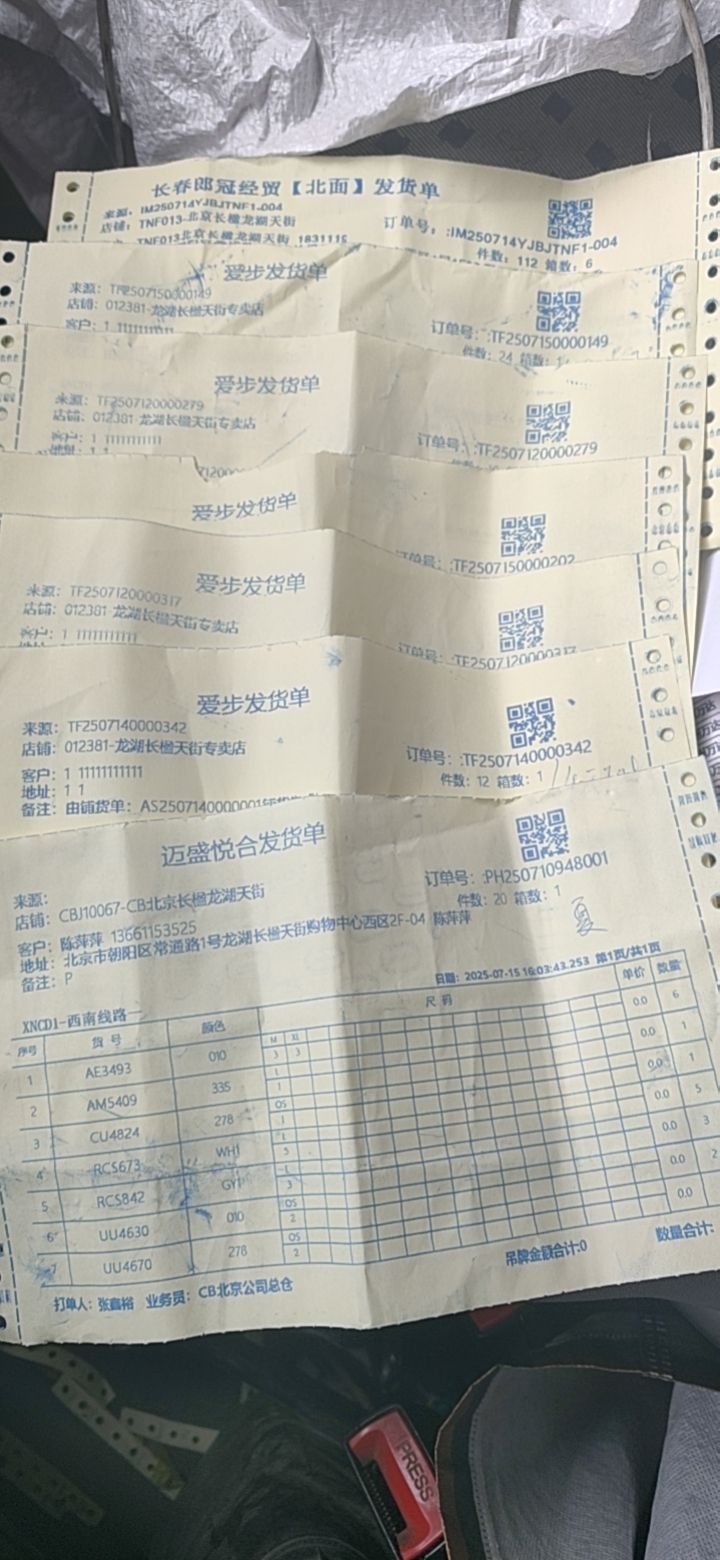 长春郎冠经贸【北面】发货单
来源: IM250714YJBJTNF1-004
店铺: TNF013-北京长楹龙湖天街
订单号: :IM250714YJBJTNF1-004
件数: 112 箱数: 6
TNF013北京长楹龙湖天街
爱步发货单
来源: TF2507150000149
店铺: 012381-龙湖长楹天街专卖店
客户: 1 11111111111
订单号: :TF2507150000149
件数: 24 箱数:
爱步发货单
来源: TF2507120000279
店铺: 012381-龙湖长楹天街专卖店
客户: 1 11111111111
地址: 1 1
订单号: :TF2507120000279
件数:
爱步发货单
订单号: :TF2507150000202
爱步发货单
来源: TF2507120000317
店铺: 012381-龙湖长楹天街专卖店
客户: 1 11111111111
订单号: :TF2507120000317
爱步发货单
来源: TF2507140000342
店铺: 012381-龙湖长楹天街专卖店
客户: 1 11111111111
地址: 1 1
备注: 由铺货单: AS2507140000001
订单号: :TF2507140000342
件数: 12 箱数: 1
迈盛悦合发货单
来源:
店铺: CBJ10067-CB北京长楹龙湖天街
订单号: :PH250710948001
件数: 20 箱数: 1
客户: 陈萍萍 13661153525
地址: 北京市朝阳区常通路1号龙湖长楹天街购物中心西区2F-04 陈萍萍
备注: P
夏
日期: 2025-07-15 16:03:43.253 第1页/共1页
XNCD1-西南线路
序号 货号 颜色 尺码 单价 数量
M XL
1 AE3493 010 3 3 0.0 6
L
2 AM5409 335 1 0.0 1
OS
3 CU4824 278 1 0.0 1
L
4 RCS673 WH1 5 0.0 5
L
5 RCS842 GY1 3 0.0 3
OS
6 UU4630 010 2 0.0 2
OS
7 UU4670 278 2 0.0
吊牌金额合计:0 数量合计:
打单人: 张鑫裕 业务员: CB北京公司总仓
PRESS